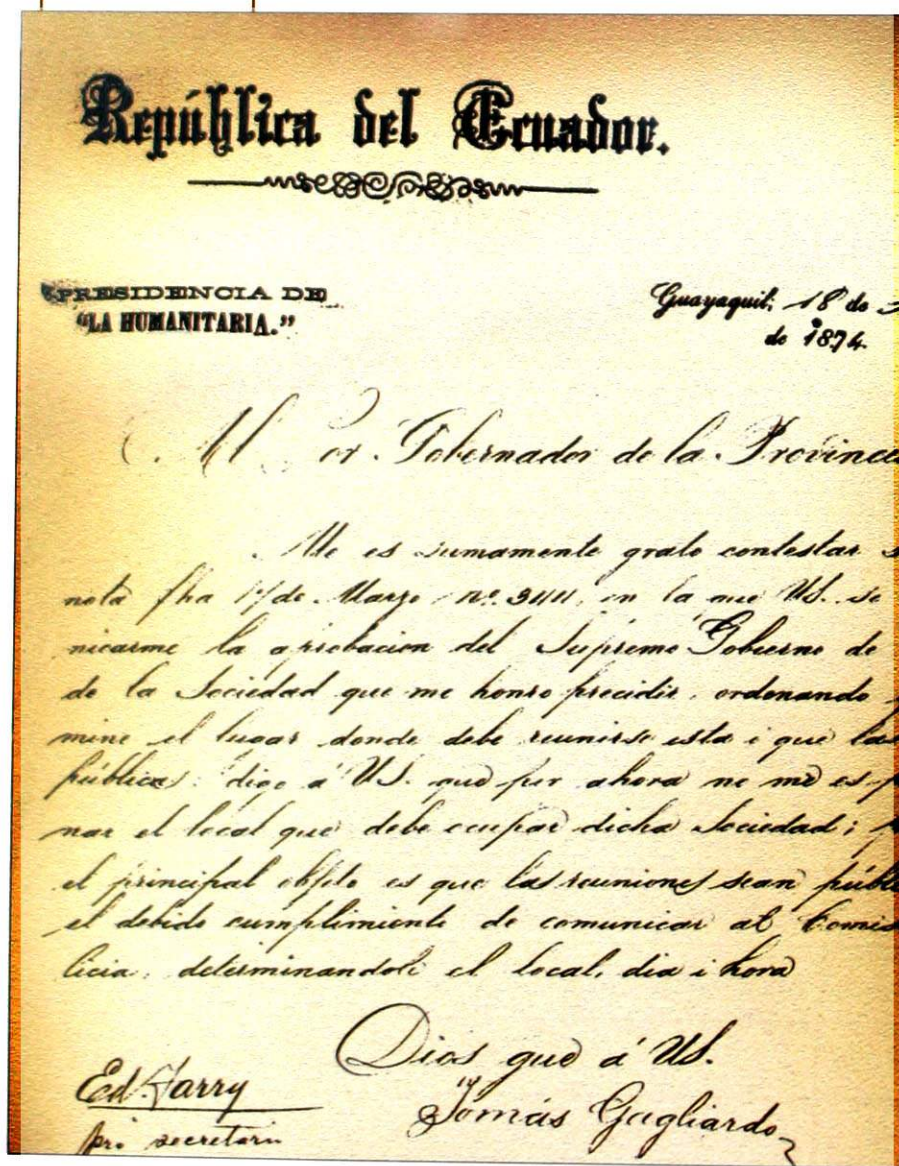 República del Ecuador.
PRESIDENCIA DE
"LA HUMANITARIA."
Guayaquil, 18 de
de 1874.
Al or. Gobernador de la Provinci
Me es sumamente grato contestar s
nota fha 17 de Marzo nº. en la que US. se
nicarme la aprobacion del Supremo Gobierno de
de la Sociedad que me honro precidir, ordenando
mine el lugar donde debe reunirse esta i que las
públicas: digo á US. que por ahora no me es p
nar el local que debe ocupar dicha Sociedad; p
el principal objeto es que las reuniones sean públi
el debido cumplimiento de comunicar al Comis
licia, determinandole el local, dia i hora
Dios gue á US.
Tomás Gagliardo
Ed. Farry
pro secretario